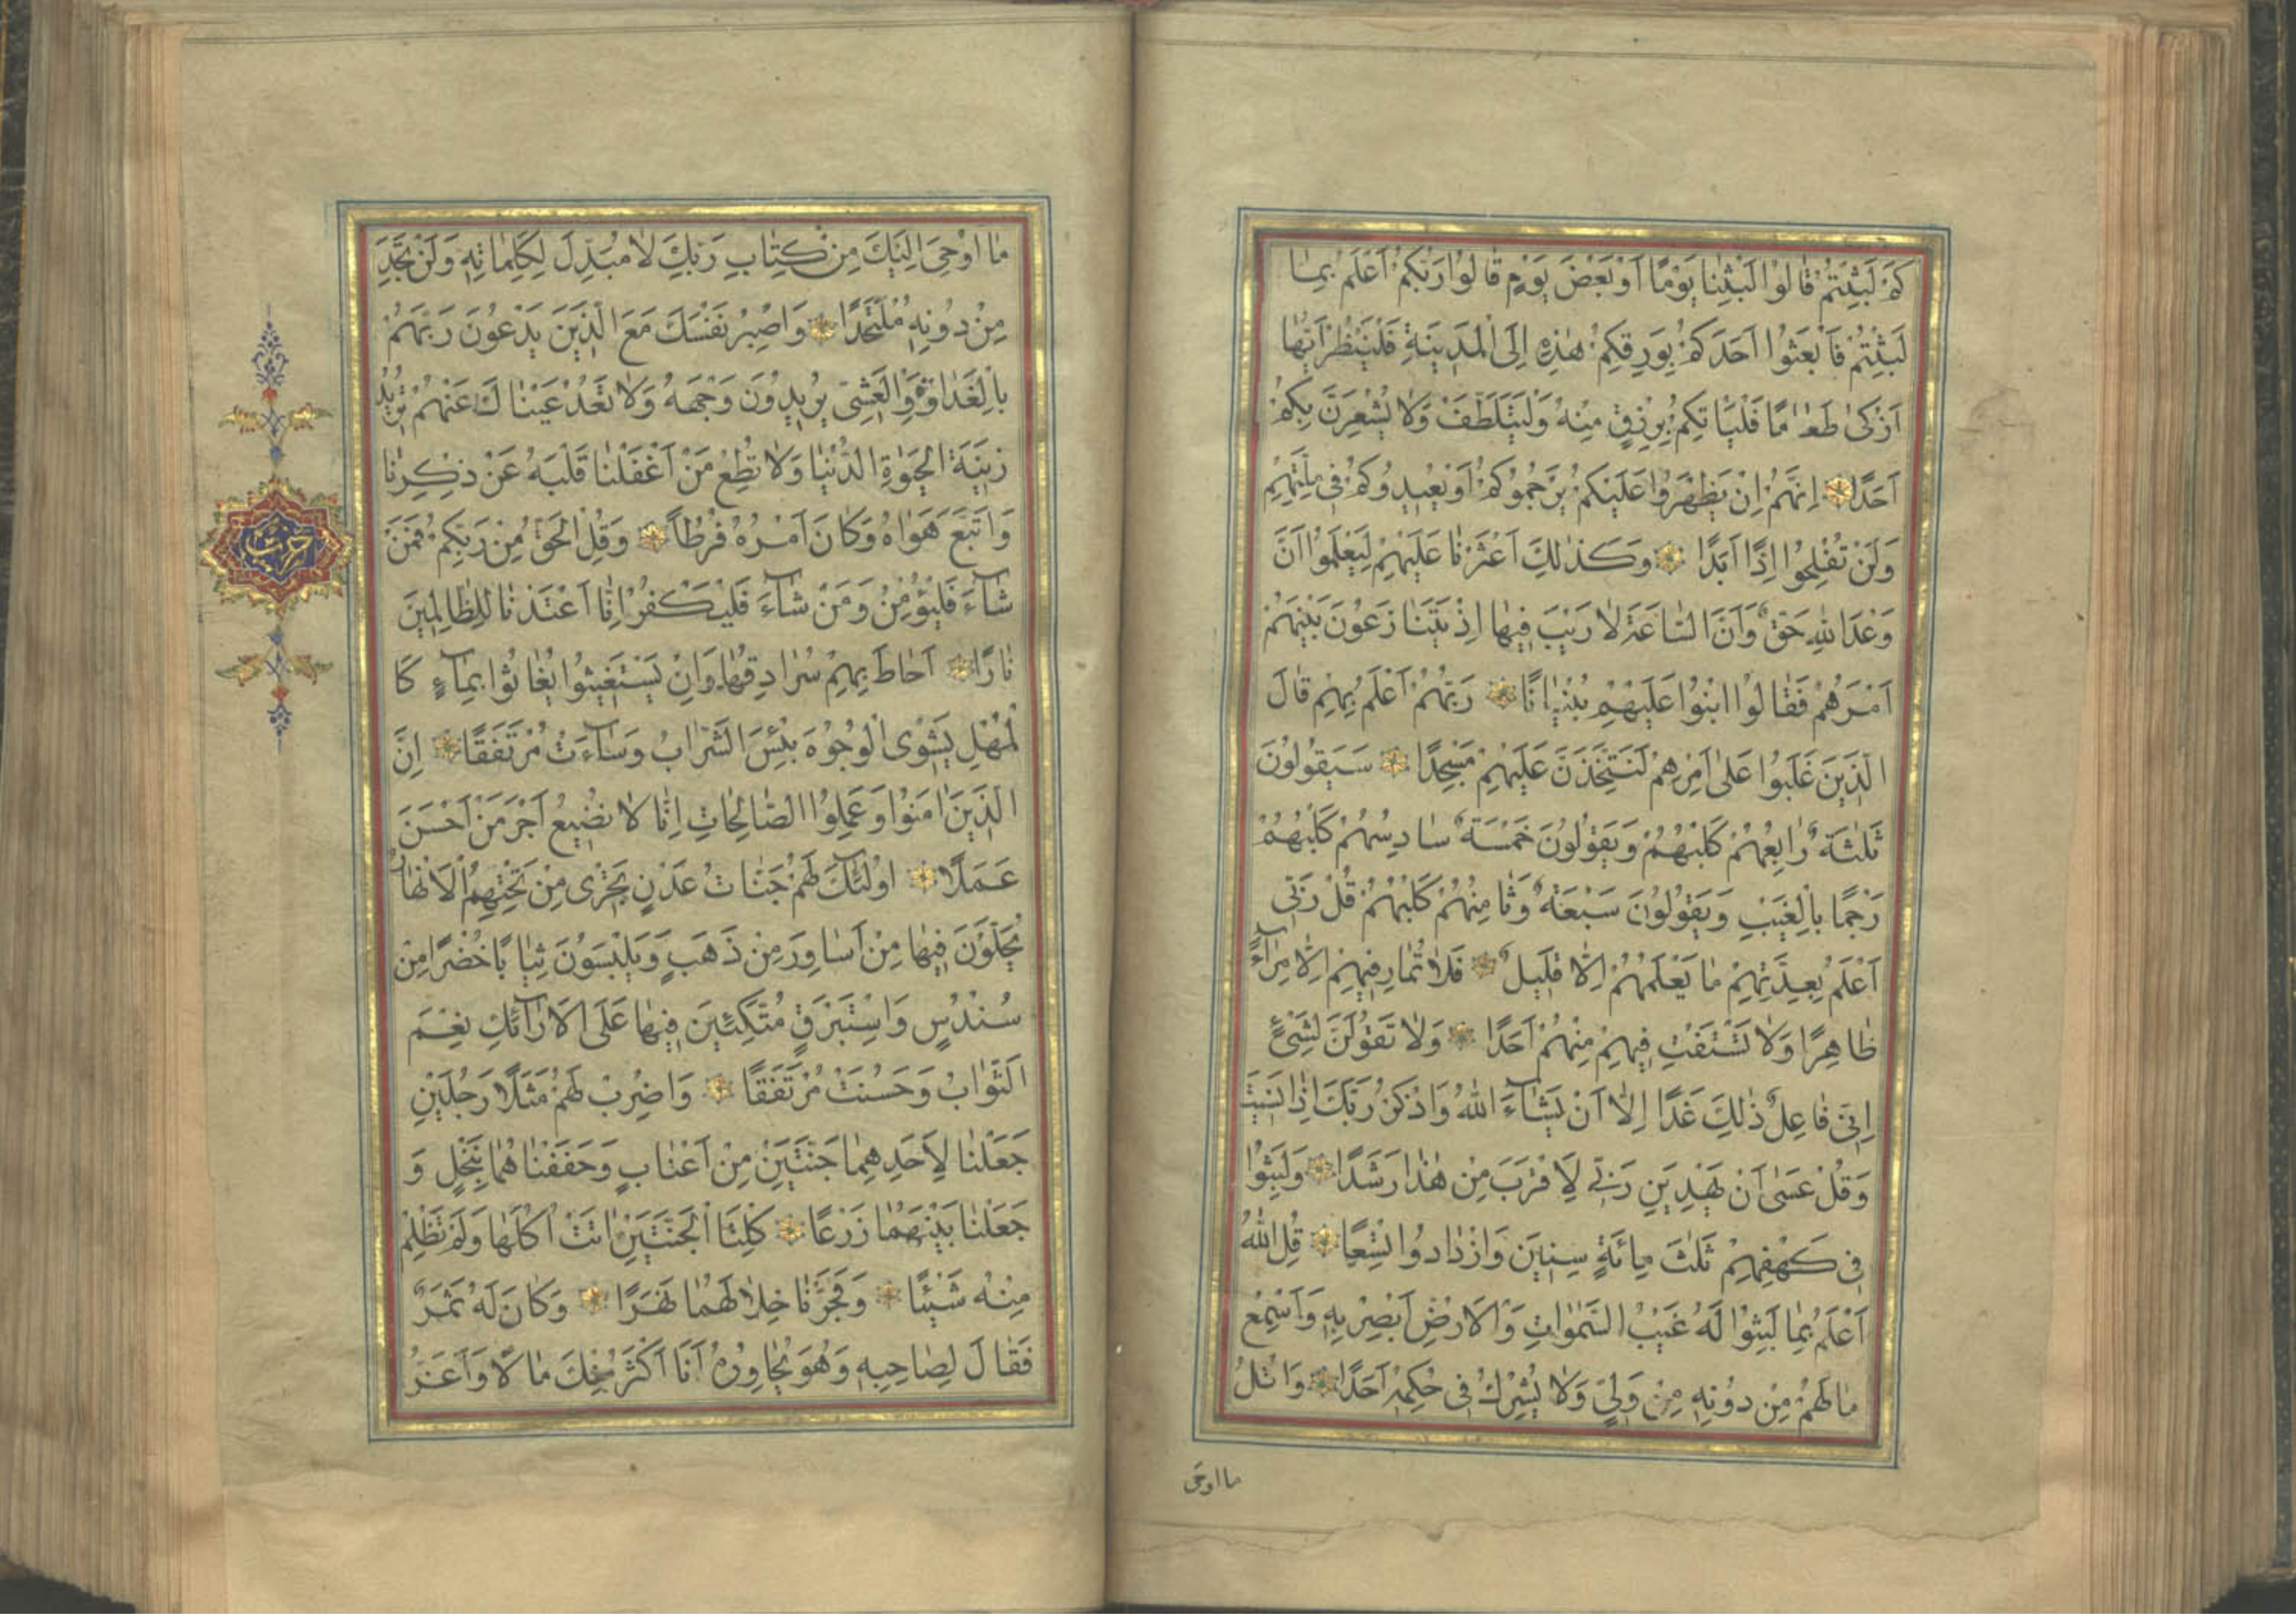 كَمْ لَبِثْتُمْ قَالُوا لَبِثْنَا يَوْمًا اَوْ بَعْضَ يَوْمٍ قَالُوا رَبُّكُمْ اَعْلَمُ بِمَا
لَبِثْتُمْ فَابْعَثُوا اَحَدَكُمْ بِوَرِقِكُمْ هٰذِهِ اِلَى الْمَدِينَةِ فَلْيَنْظُرْ اَيُّهَا
اَزْكىٰ طَعَامًا فَلْيَاْتِكُمْ بِرِزْقٍ مِنْهُ وَلْيَتَلَطَّفْ وَلَا يُشْعِرَنَّ بِكُمْ
اَحَدًا اِنَّهُمْ اِنْ يَظْهَرُوا عَلَيْكُمْ يَرْجُمُوكُمْ اَوْ يُعِيدُوكُمْ فِى مِلَّتِهِمْ
وَلَنْ تُفْلِحُوا اِذًا اَبَدًا وَكَذٰلِكَ اَعْثَرْنَا عَلَيْهِمْ لِيَعْلَمُوا اَنَّ
وَعْدَ اللهِ حَقٌّ وَاَنَّ السَّاعَةَ لَا رَيْبَ فِيهَا اِذْ يَتَنَازَعُونَ بَيْنَهُمْ
اَمْرَهُمْ فَقَالُوا ابْنُوا عَلَيْهِمْ بُنْيَانًا رَبُّهُمْ اَعْلَمُ بِهِمْ قَالَ
الَّذِينَ غَلَبُوا عَلىٰ اَمْرِهِمْ لَنَتَّخِذَنَّ عَلَيْهِمْ مَسْجِدًا سَيَقُولُونَ
ثَلٰثَةٌ رَابِعُهُمْ كَلْبُهُمْ وَيَقُولُونَ خَمْسَةٌ سَادِسُهُمْ كَلْبُهُمْ
رَجْمًا بِالْغَيْبِ وَيَقُولُونَ سَبْعَةٌ وَثَامِنُهُمْ كَلْبُهُمْ قُلْ رَبِّى
اَعْلَمُ بِعِدَّتِهِمْ مَا يَعْلَمُهُمْ اِلَّا قَلِيلٌ فَلَا تُمَارِ فِيهِمْ اِلَّا مِرَآءً
ظَاهِرًا وَلَا تَسْتَفْتِ فِيهِمْ مِنْهُمْ اَحَدًا وَلَا تَقُولَنَّ لِشَىْءٍ
اِنِّى فَاعِلٌ ذٰلِكَ غَدًا اِلَّا اَنْ يَشَآءَ اللهُ وَاذْكُرْ رَبَّكَ اِذَا نَسِيتَ
وَقُلْ عَسىٰ اَنْ يَهْدِيَنِ رَبِّى لِاَقْرَبَ مِنْ هٰذَا رَشَدًا وَلَبِثُوا
فِى كَهْفِهِمْ ثَلٰثَ مِائَةٍ سِنِينَ وَازْدَادُوا تِسْعًا قُلِ اللهُ
اَعْلَمُ بِمَا لَبِثُوا لَهُ غَيْبُ السَّمٰوَاتِ وَالْاَرْضِ اَبْصِرْ بِهِ وَاَسْمِعْ
مَا لَهُمْ مِنْ دُونِهِ مِنْ وَلِىٍّ وَلَا يُشْرِكُ فِى حُكْمِهِ اَحَدًا وَاتْلُ
ما اوحى
مَا اُوْحِىَ اِلَيْكَ مِنْ كِتَابِ رَبِّكَ لَا مُبَدِّلَ لِكَلِمَاتِهِ وَلَنْ تَجِدَ
مِنْ دُونِهِ مُلْتَحَدًا وَاصْبِرْ نَفْسَكَ مَعَ الَّذِينَ يَدْعُونَ رَبَّهُمْ
بِالْغَدَاوةِ وَالْعَشِىِّ يُرِيدُونَ وَجْهَهُ وَلَا تَعْدُ عَيْنَاكَ عَنْهُمْ تُرِيدُ
زِينَةَ الْحَيٰوةِ الدُّنْيَا وَلَا تُطِعْ مَنْ اَغْفَلْنَا قَلْبَهُ عَنْ ذِكْرِنَا
وَاتَّبَعَ هَوَاهُ وَكَانَ اَمْرُهُ فُرُطًا وَقُلِ الْحَقُّ مِنْ رَبِّكُمْ فَمَنْ
شَآءَ فَلْيُؤْمِنْ وَمَنْ شَآءَ فَلْيَكْفُرْ اِنَّا اَعْتَدْنَا لِلظَّالِمِينَ
نَارًا اَحَاطَ بِهِمْ سُرَادِقُهَا وَاِنْ يَسْتَغِيثُوا يُغَاثُوا بِمَآءٍ كَا
لْمُهْلِ يَشْوِى الْوُجُوهَ بِئْسَ الشَّرَابُ وَسَآءَتْ مُرْتَفَقًا اِنَّ
الَّذِينَ اٰمَنُوا وَعَمِلُوا الصَّالِحَاتِ اِنَّا لَا نُضِيعُ اَجْرَ مَنْ اَحْسَنَ
عَمَلًا اُولٰئِكَ لَهُمْ جَنَّاتُ عَدْنٍ تَجْرِى مِنْ تَحْتِهِمُ الْاَنْهَارُ
يُحَلَّوْنَ فِيهَا مِنْ اَسَاوِرَ مِنْ ذَهَبٍ وَيَلْبَسُونَ ثِيَابًا خُضْرًا مِنْ
سُنْدُسٍ وَاِسْتَبْرَقٍ مُتَّكِئِينَ فِيهَا عَلَى الْاَرَآئِكِ نِعْمَ
الثَّوَابُ وَحَسُنَتْ مُرْتَفَقًا وَاضْرِبْ لَهُمْ مَثَلًا رَجُلَيْنِ
جَعَلْنَا لِاَحَدِهِمَا جَنَّتَيْنِ مِنْ اَعْنَابٍ وَحَفَفْنَاهُمَا بِنَخْلٍ وَ
جَعَلْنَا بَيْنَهُمَا زَرْعًا كِلْتَا الْجَنَّتَيْنِ اٰتَتْ اُكُلَهَا وَلَمْ تَظْلِمْ
مِنْهُ شَيْئًا وَفَجَّرْنَا خِلَالَهُمَا نَهَرًا وَكَانَ لَهُ ثَمَرٌ
فَقَالَ لِصَاحِبِهِ وَهُوَ يُحَاوِرُهُ اَنَا اَكْثَرُ مِنْكَ مَالًا وَاَعَزُّ
حزب